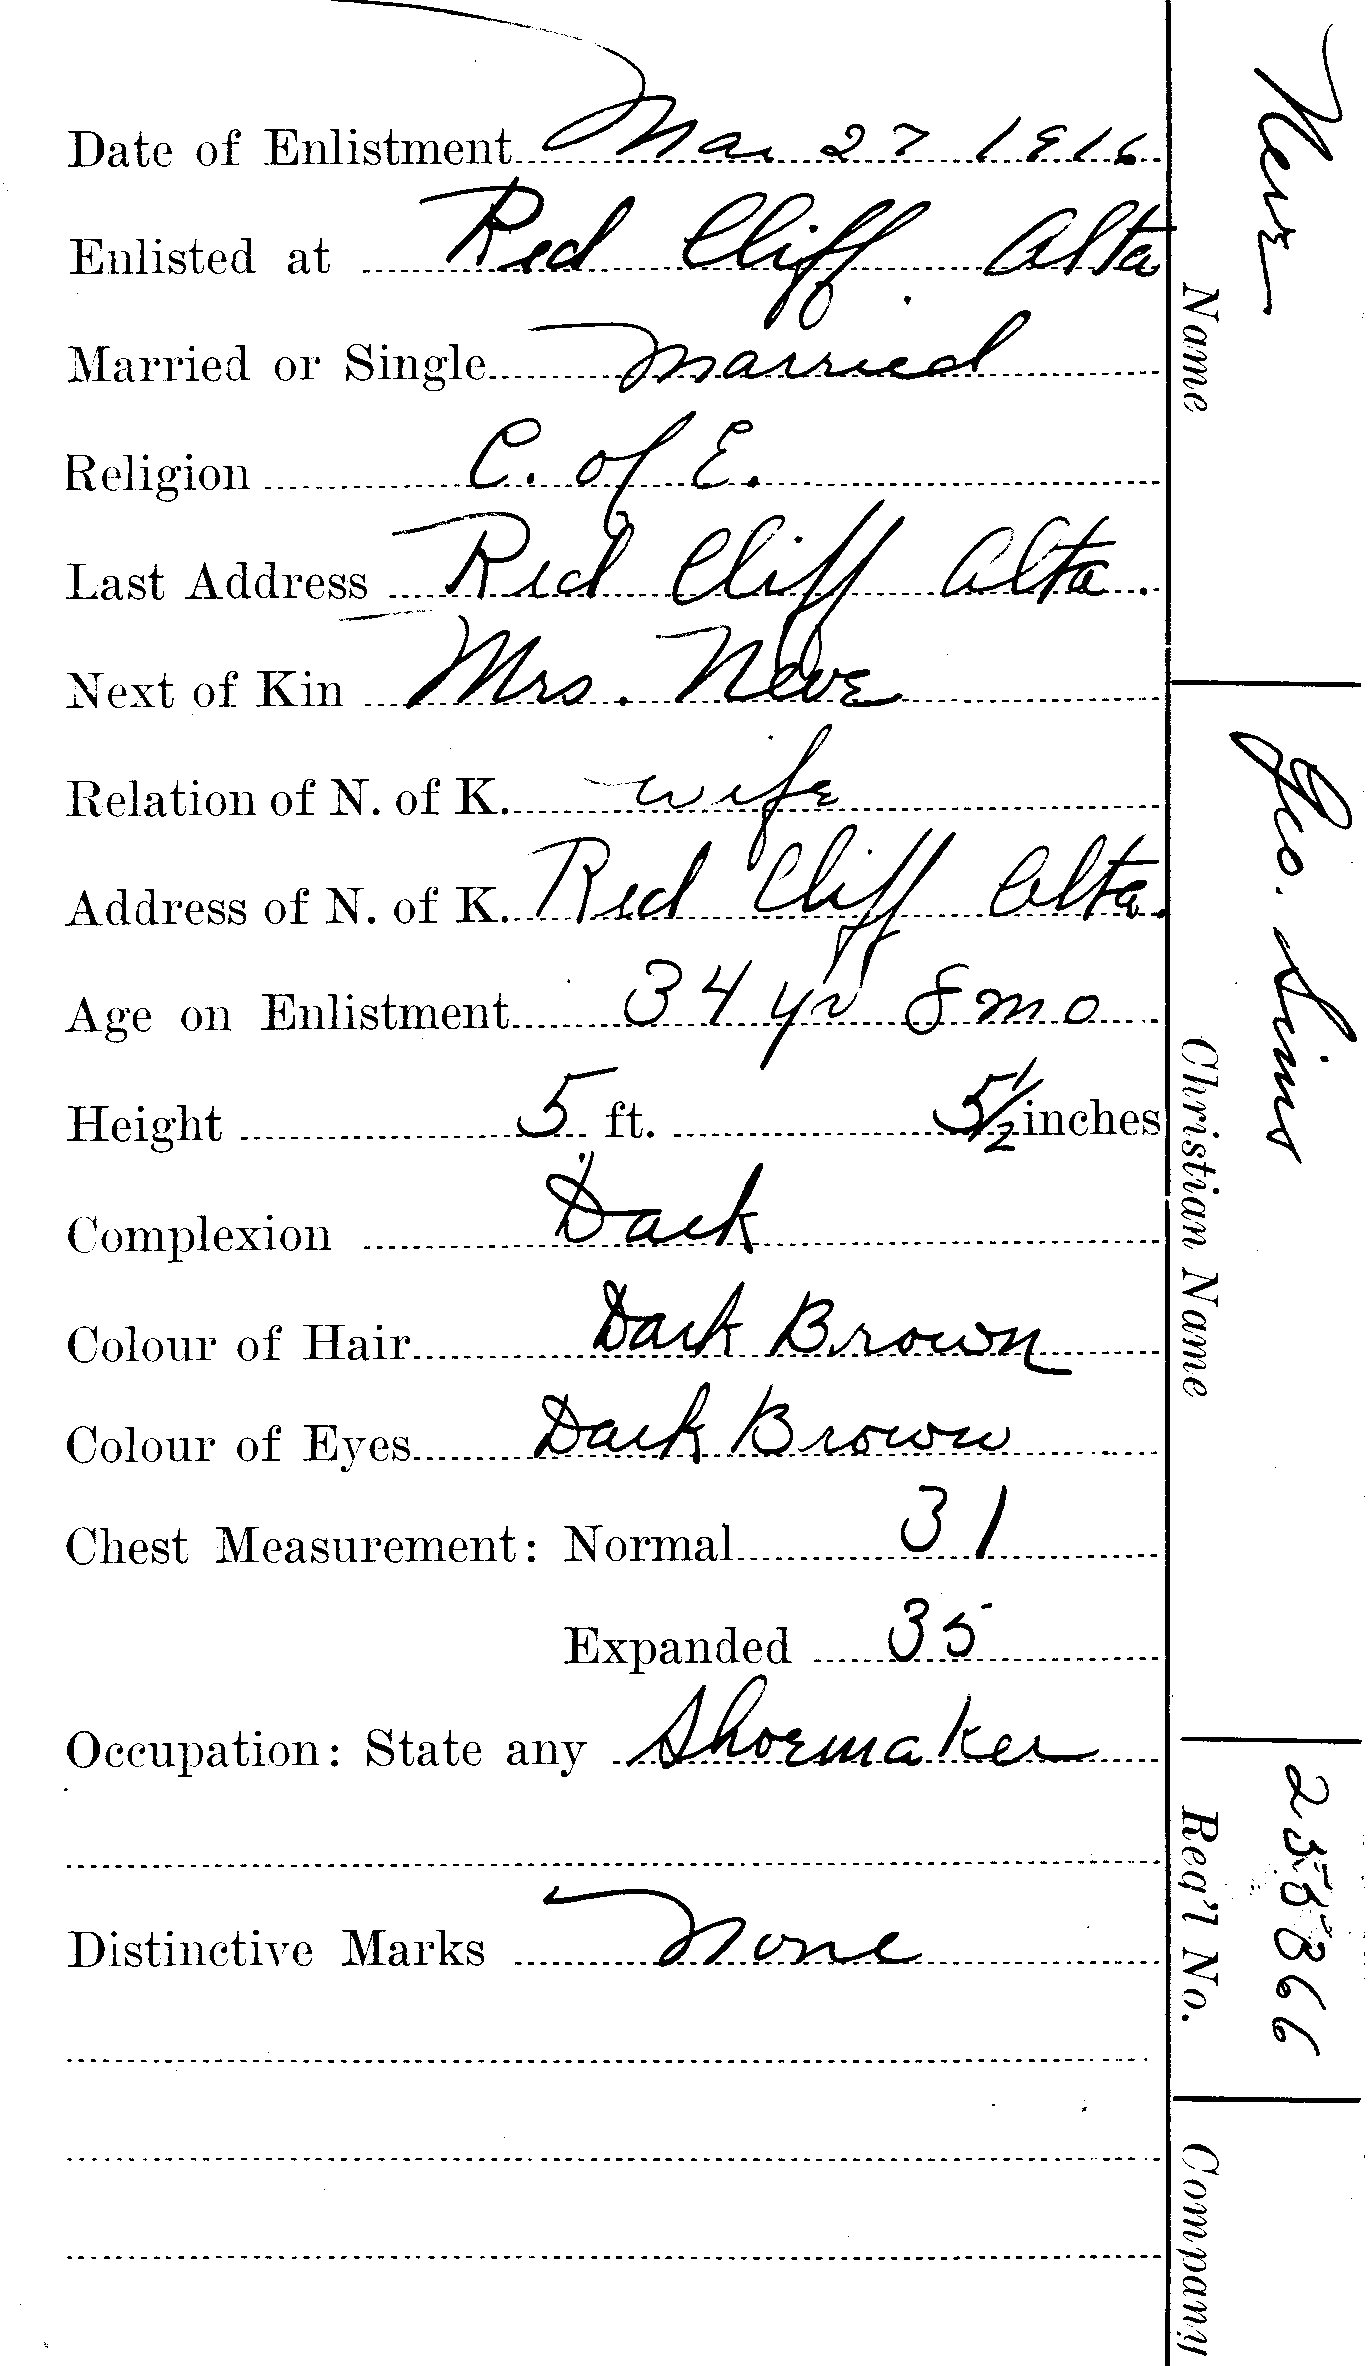 Date of Enlistment Mar 27 1916
Enlisted at Red Cliff Alta
Married or Single Married
Religion C. of E.
Last Address Red Cliff Alta.
Next of Kin Mrs. Neve
Relation of N. of K. wife
Address of N. of K. Red Cliff Alta.
Age on Enlistment 34 yr 8 mo
Height 5 ft. 5½ inches
Complexion Dark
Colour of Hair Dark Brown
Colour of Eyes Dark Brown
Chest Measurement: Normal 31
Expanded 35
Occupation: State any Shoemaker
Distinctive Marks None
Neve
Name
Geo. Sims
Christian Name
Reg'l No.
Company